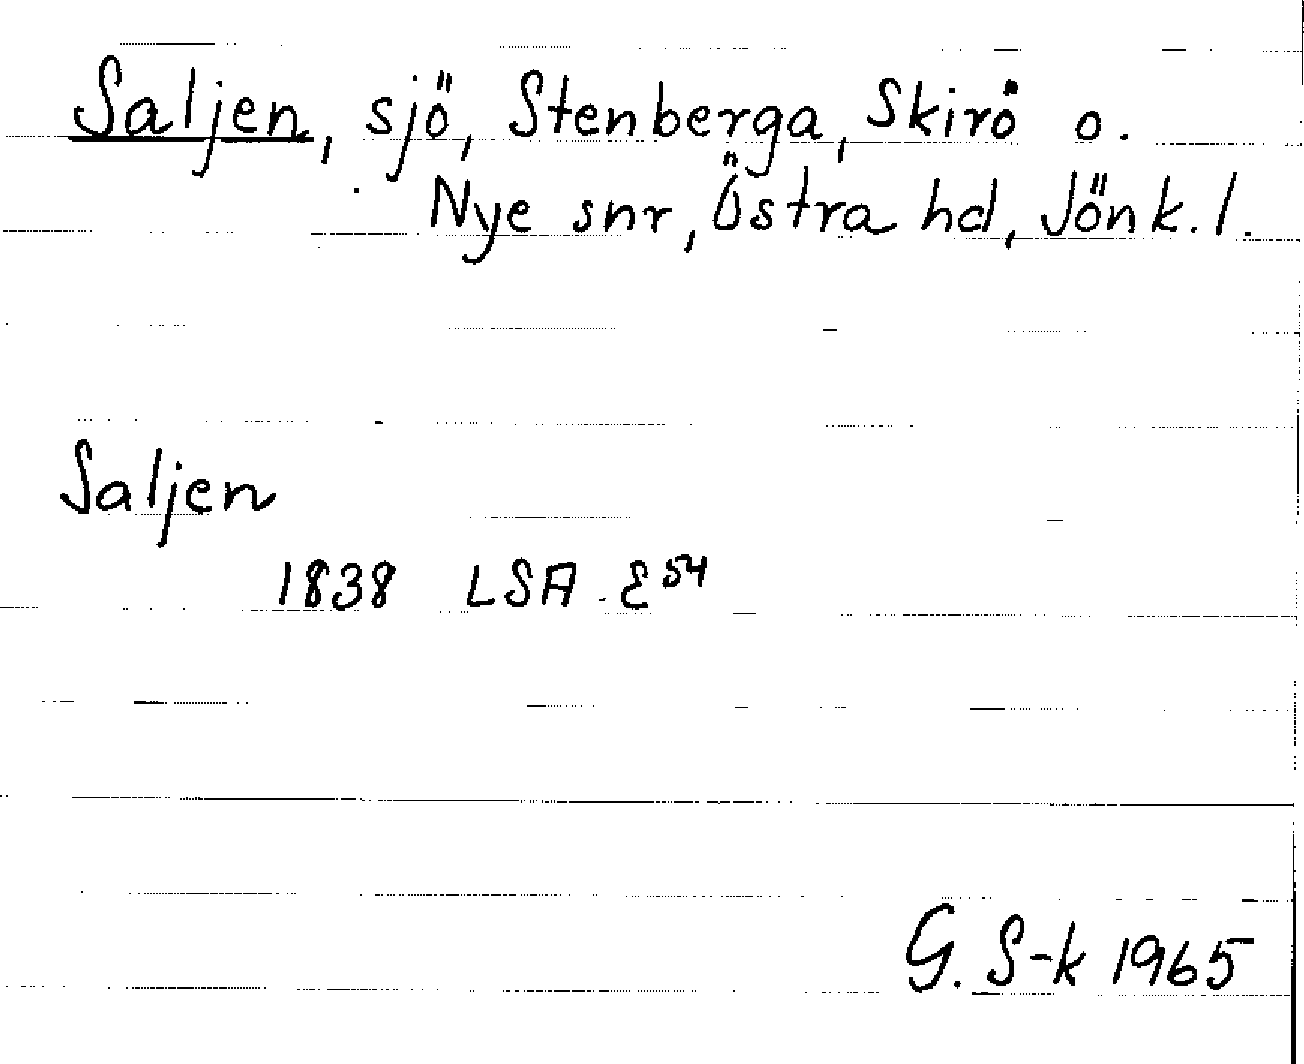 Saljen, sjö, Stenberga, Skirö o.
Nye snr, Östra hd, Jönk. l.
Saljen
1838 LSA E54
G. S-k 1965